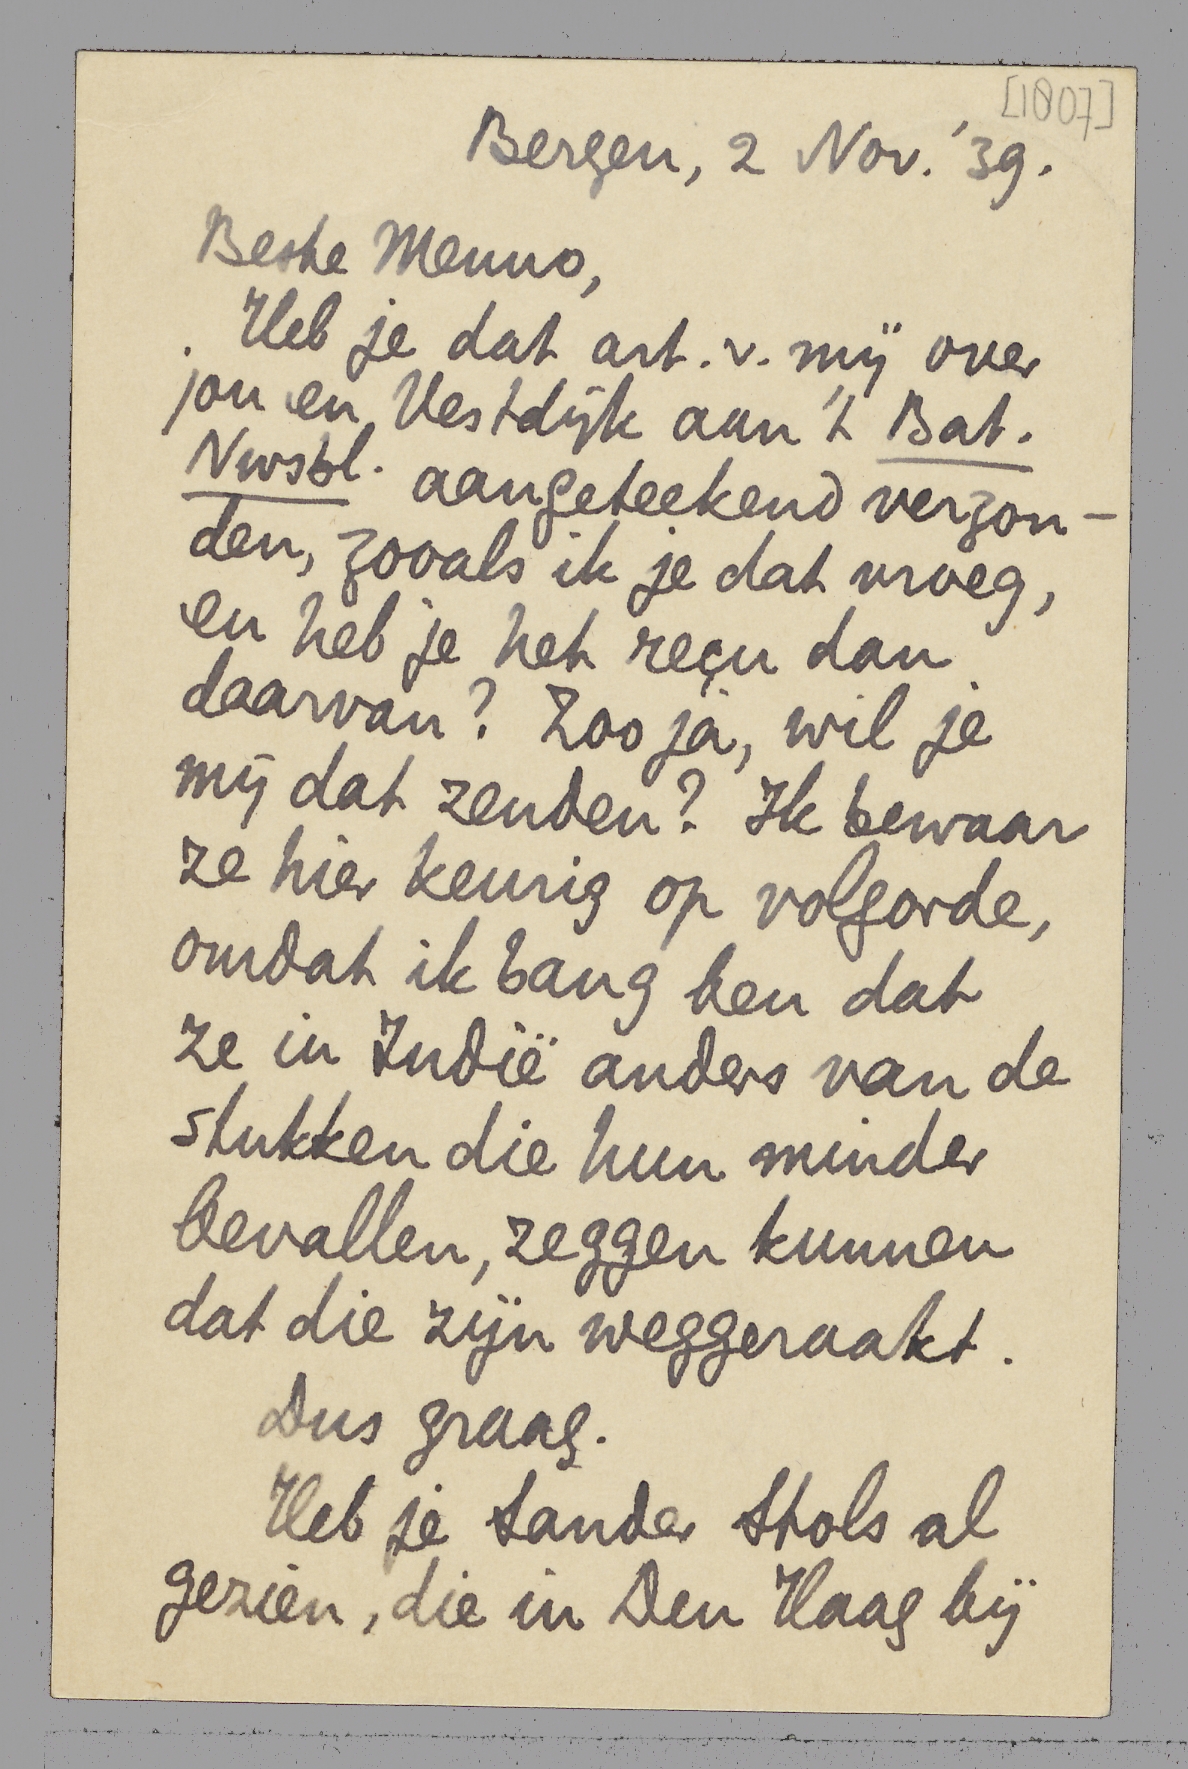 [1807]
Bergen, 2 Nov. '39.
Beste Menno,
Heb je dat art. v. mij over
jou en Vestdijk aan 't Bat.
Nwsbl. aangeteekend verzon-
den, zooals ik je dat vroeg,
en heb je het reçu dan
daarvan? Zoo ja, wil je
mij dat zenden? Ik bewaar
ze hier keurig op volgorde,
omdat ik bang ben dat
ze in Indië anders van de
stukken die hun minder
bevallen, zeggen kunnen
dat die zijn weggeraakt.
Dus graag.
Heb je Sander Stols al
gezien, die in Den Haag bij